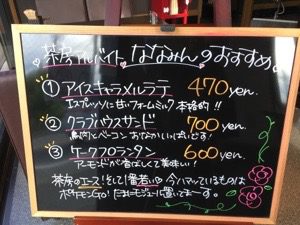 茶房アルバイト ななみんのおすすめ
① アイスキャラメルラテ 470 yen.
エスプレッソに甘いフォームミルク 本格的!!
② クラブハウスサンド 700 yen.
鳥肉とベーコン おなかいっぱいです!
③ ケークフロランタン 600 yen.
アーモンドが香ばしくて美味しい!
茶房のエース!そして1番若い 今ハマっているものは
ポケモンGO! たまにモジュールに置いてまーす。